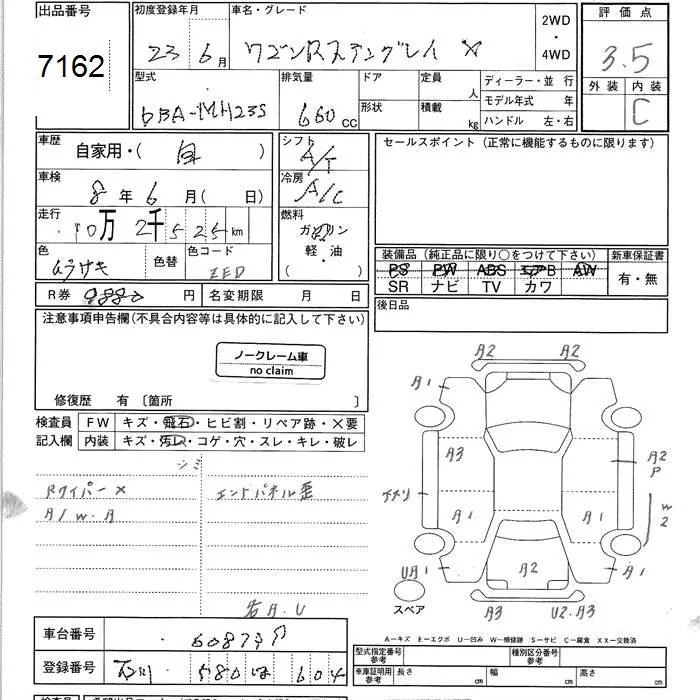 出品番号 初度登録年月 車名・グレード 2WD ・ 4WD 評価点
7162 23 6月 ワゴンRスティングレイ X 3.5
型式 排気量 ドア 定員 人 ディーラー・並 行 外装 内装
DBA-MH23S 660 cc 形状 積載 kg モデル年式 年 C
ハンドル 左・右
車歴 自家用・( 自 ) シフト A/T セールスポイント(正常に機能するものに限ります)
車検 8年 6月( 日) 冷房 A/C
走行 10万 2千525km 燃料 ガソリン
軽・油
( )
色 ムラサキ 色替 色コード ZED 装備品(純正品に限り○をつけて下さい) 新車保証書
PS PW ABS エアB AW 有・無
SR ナビ TV カワ
R券 円 名変期限 月 日 後日品
注意事項申告欄(不具合内容等は具体的に記入して下さい)
ノークレーム車
no claim
修復歴 有 〔箇所 〕
検査員 FW キズ・飛石・ヒビ割・リペア跡・X要
記入欄 内装 キズ・汚レ・コゲ・穴・スレ・キレ・破レ
シミ
Rワイパー×
A/W.A
エンドパネル歪
A2 A2
A1 A1
A3 A2
P
A1 A1 W2
UA1 A2 A1
スペア A3 U2.A3
A.U
A-キズ E-エクボ U-凹み W-補修跡 S-サビ C-腐食 XX-交換済
車台番号
登録番号 石川 580 604
型式指定番号 参考 種別区分番号 参考
車庫証明用 参考 長さ cm 幅 cm 高さ cm